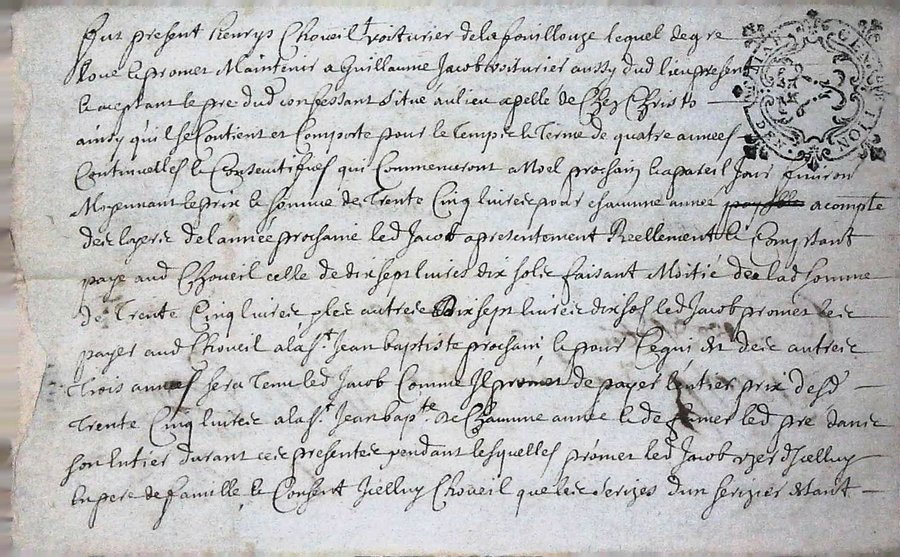 Fut present Henrys Choveil voiturier de la fouillouze lequel de gre
loue et promet Maintenir a Guillaume Jacob voiturier aussy dud lieu present
et aceptant le pre dud confessant Situé au lieu apelle de Chez Christo
ainsy qu'il se Contient et Comporte pour le temps et Terme de quatre années
Continuelles et Consecutifves qui Commenceront a Noel prochain et a pareil Jour finiront
Moyennant le prix et somme de Trente Cinq livres pour chacunne année acompte
de la prix de l'année prochaine led Jacob a presentement Reellement et Comptant
paye aud Choveil celle de dix sept livres dix sols faisant Moitié de lad somme
de Trente Cinq livres et les autres Dix sept livres dix sols led Jacob promet les
payer aud Choveil a la St Jean baptiste prochain, et pour Ce qui est des autres
Trois années sera Tenu led Jacob Comme Il promet de payer l'entier prix desd
Trente Cinq livres a la St Jean bapte de Chacunne année et de fumer led pre dans
son Entier durant ces presentes pendant lesquelles promet led Jacob User d'Icelluy
En pere de famille, et Consent Icelluy Choveil que les serizes d'un serizier Estant